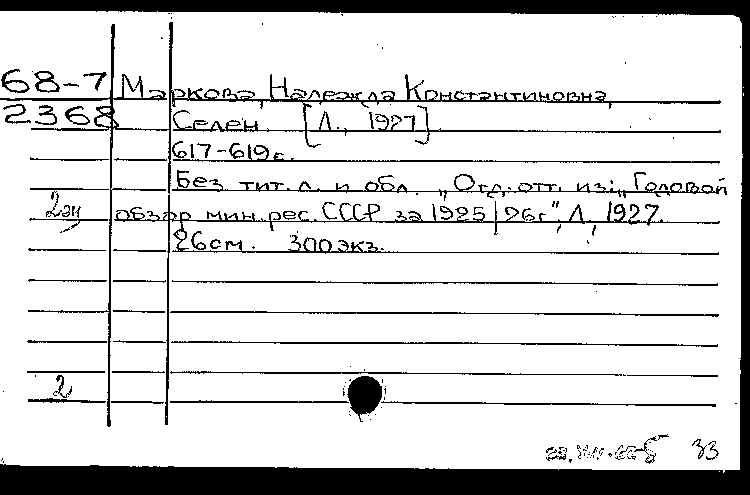 68-7 Маркова, Надежда Константиновна,
2368 Селен. [Л., 1927].
617-619 с.
Без тит. л. и обл. „Отд. отт. из: „Годовой
2 экз обзор мин. рес. СССР за 1925/26 г.", Л., 1927.
26 см. 300 экз.
2
33